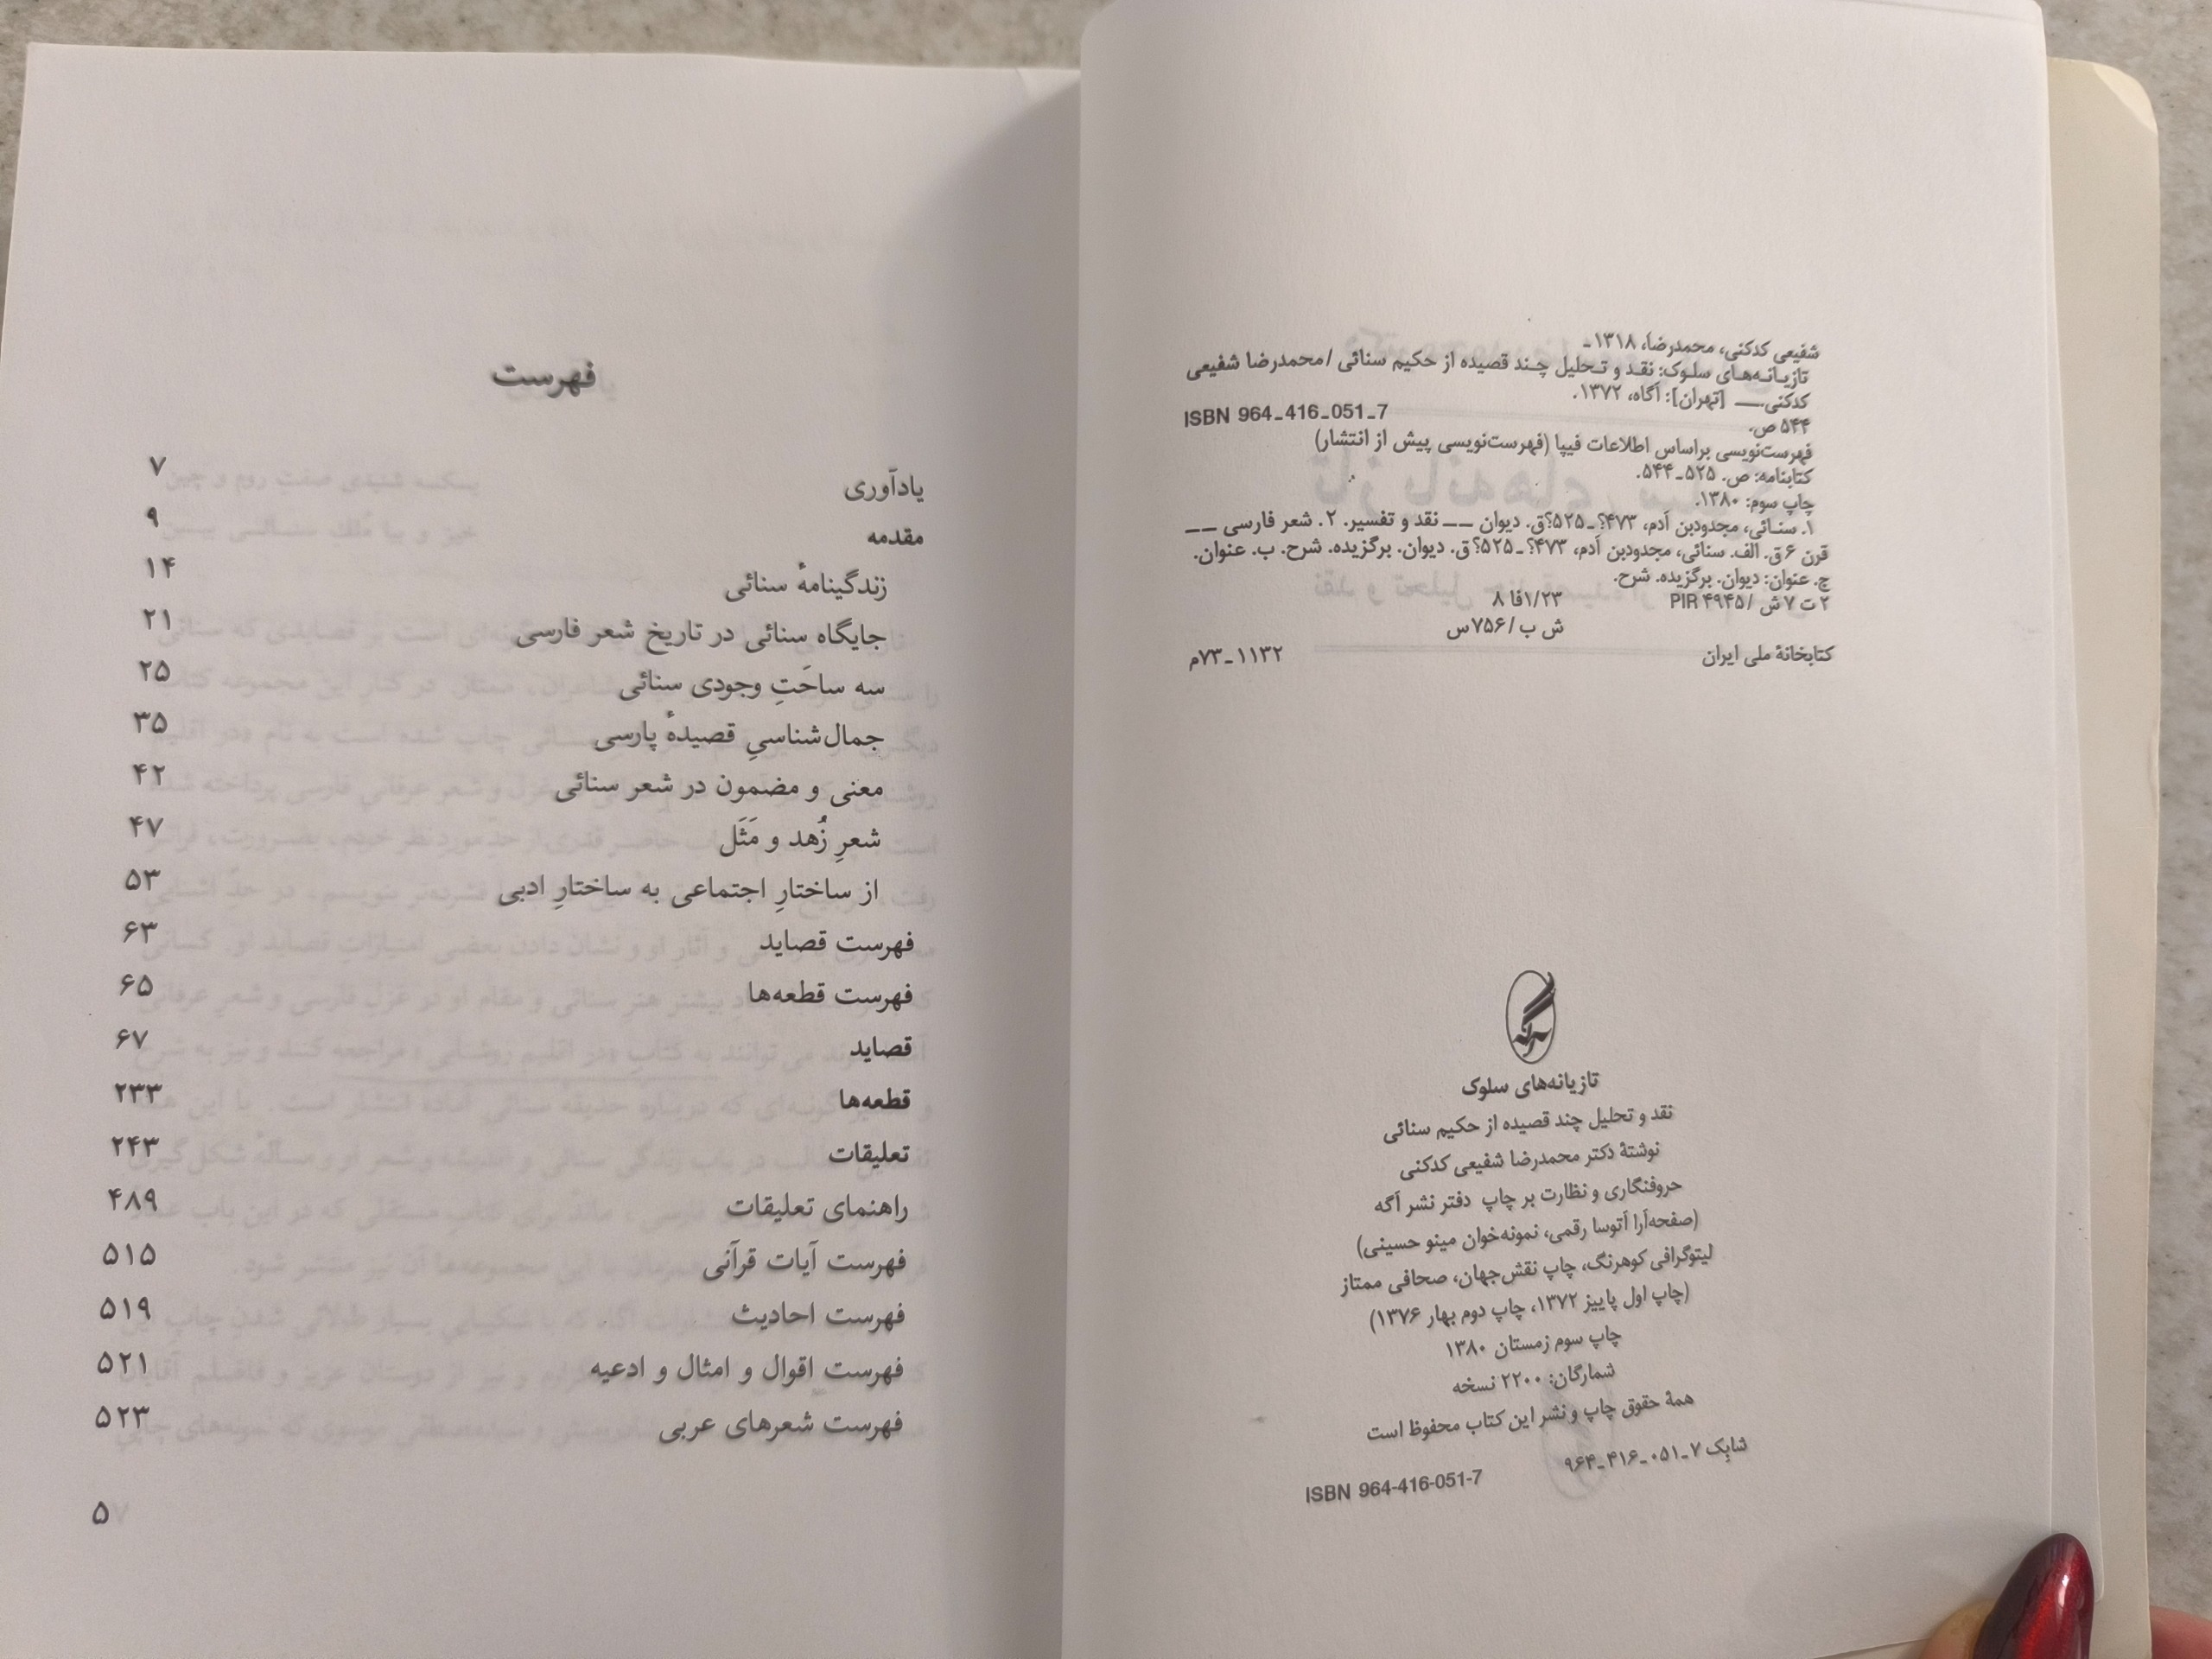 شفیعی کدکنی، محمدرضا، ۱۳۱۸ـ
تازیـانـه‌هـای سلـوک: نقـد و تـحلیل چـند قصیده از حکیم سنائی / محمدرضا شفیعی
کدکنی.ــــ [تهران]: آگاه، ۱۳۷۲.
۵۴۴ ص. ISBN 964ـ416ـ051ـ7
فهرست‌نویسی براساس اطلاعات فیپا (فهرست‌نویسی پیش از انتشار)
کتابنامه: ص. ۵۲۵ـ۵۴۴.
چاپ سوم: ۱۳۸۰.
۱. سنـائی، مجدودبن آدم، ۴۷۳؟ـ۵۲۵؟ق. دیوان ــ ــ نقد و تفسیر. ۲. شعر فارسی ــ ــ
قرن ۶ق. الف. سنائی، مجدودبن آدم، ۴۷۳؟ـ۵۲۵؟ق. دیوان. برگزیده. شرح. ب. عنوان.
ج. عنوان: دیوان. برگزیده. شرح.
۲ ت ۷ ش / PIR ۴۹۴۵ ۱/۲۳فا ۸
ش ب / ۷۵۶س
کتابخانهٔ ملی ایران ۱۱۳۲ـ۷۳م
تازیانه‌های سلوک
نقد و تحلیل چند قصیده از حکیم سنائی
نوشتهٔ دکتر محمدرضا شفیعی کدکنی
حروفنگاری و نظارت بر چاپ دفتر نشر آگه
(صفحه‌آرا آتوسا رقمی، نمونه‌خوان مینو حسینی)
لیتوگرافی کوهرنگ، چاپ نقش‌جهان، صحافی ممتاز
(چاپ اول پاییز ۱۳۷۲، چاپ دوم بهار ۱۳۷۶)
چاپ سوم زمستان ۱۳۸۰
شمارگان: ۲۲۰۰ نسخه
همهٔ حقوق چاپ و نشر این کتاب محفوظ است
شابک ۷ـ۰۵۱ـ۴۱۶ـ۹۶۴ ISBN 964-416-051-7
فهرست
یادآوری ۷
مقدمه ۹
زندگینامهٔ سنائی ۱۴
جایگاه سنائی در تاریخ شعر فارسی ۲۱
سه ساحَتِ وجودی سنائی ۲۵
جمال‌شناسیِ قصیدهٔ پارسی ۳۵
معنی و مضمون در شعر سنائی ۴۲
شعرِ زُهد و مَثَل ۴۷
از ساختارِ اجتماعی به ساختارِ ادبی ۵۳
فهرست قصاید ۶۳
فهرست قطعه‌ها ۶۵
قصاید ۶۷
قطعه‌ها ۲۳۳
تعلیقات ۲۴۳
راهنمای تعلیقات ۴۸۹
فهرست آیات قرآنی ۵۱۵
فهرست احادیث ۵۱۹
فهرست اقوال و امثال و ادعیه ۵۲۱
فهرست شعرهای عربی ۵۲۳
۵